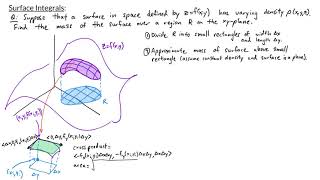 Surface Integrals:
Q: Suppose that a surface in space defined by z=f(x,y) has varying density ρ(x,y,z).
Find the mass of the surface over a region R on the xy-plane.
z=f(x,y)
① Divide R into small rectangles of width Δx
and length Δy.
② Approximate mass of surface above small
rectangle (assume constant density and surface is a plane).
R
<Δx,0,f_x(x,y)Δx>
<0,Δy,f_y(x,y)Δy>
cross product =
<-f_x(x,y)ΔxΔy, -f_y(x,y)ΔxΔy, ΔxΔy>
area = √
(x,y)
Δy
Δx